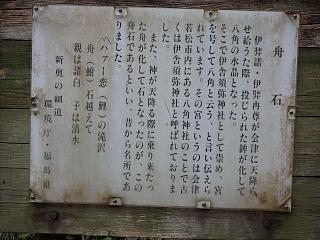 舟石
伊弉諾・伊弉冉尊が会津に天降ら
せ給うた際、投じられた鉾が化して
八角の水晶となった。
そこで伊舎須弥神社として崇め、宮
を号して八角と云う、と言い伝えら
れています。その宮というのは会津
若松市内にある八角神社のことで古
くは伊舎須弥神社と呼ばれておりま
した。
また、神が天降る際に乗り来たっ
た舟が化して石となったのが、この
舟石であるといい、昔から名所であ
りました。
ハァー恋(鯉)の滝沢
舟(鮒)石越えて
親は諸白 子は清水
新奥の細道
環境庁・福島県